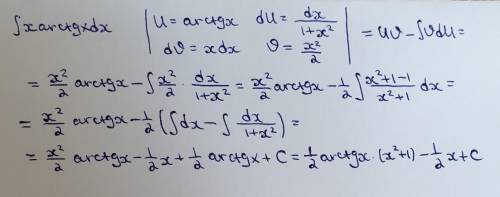 ∫x arctgx dx | U = arctgx dU = dx/(1+x²) | dϑ = x dx ϑ = x²/2 | = Uϑ - ∫ϑdU =
= x²/2 arctgx - ∫ x²/2 · dx/(1+x²) = x²/2 arctgx - 1/2 ∫ (x²+1-1)/(x²+1) dx =
= x²/2 arctgx - 1/2 (∫dx - ∫ dx/(1+x²)) =
= x²/2 arctgx - 1/2 x + 1/2 arctgx + C = 1/2 arctgx · (x²+1) - 1/2 x + C